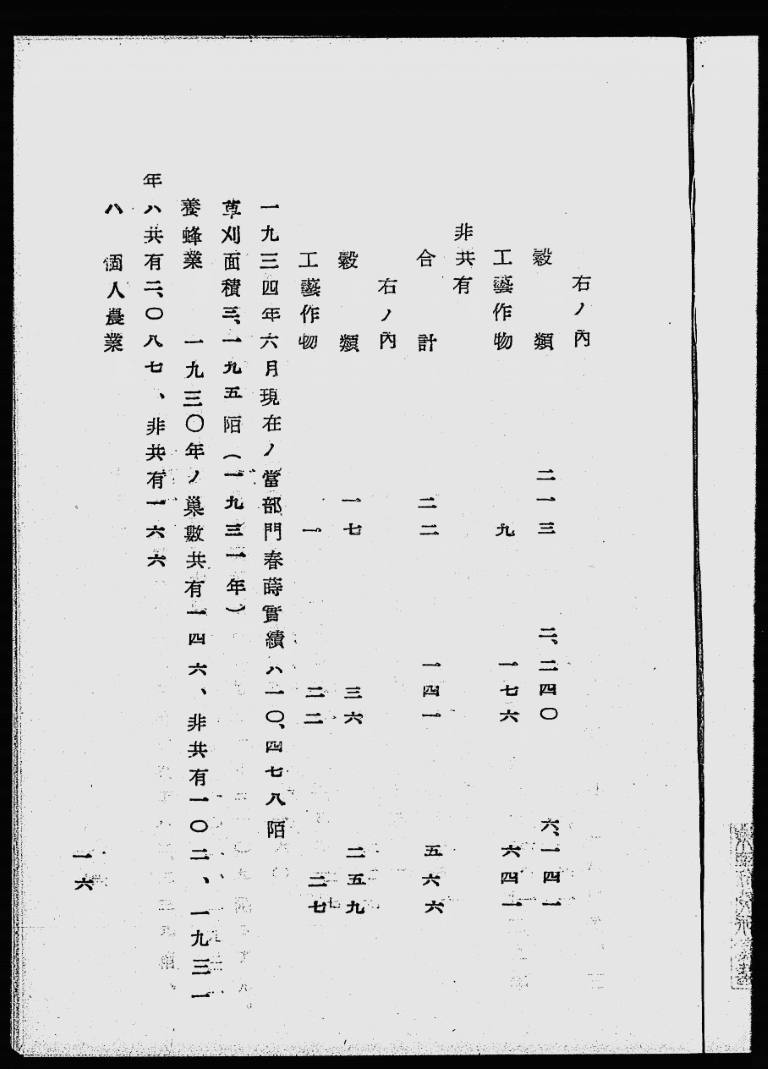 右ノ內
穀類 二一三 二、二四〇 六、一四一
工藝作物 九 一七六 六四一
非共有
合計 二二 一四一 五六六
右ノ內
穀類 一七 三六 二五九
工藝作物 一 二二 二七
一九三四年六月現在ノ當部門春蒔實績ハ一〇、四七八陌
草刈面積三、一九五陌(一九三一年)
養蜂業 一九三〇年ノ巢數共有一四六、非共有一〇二、一九三一
年ハ共有二、〇八七、非共有一六六
八 個人農業
一六